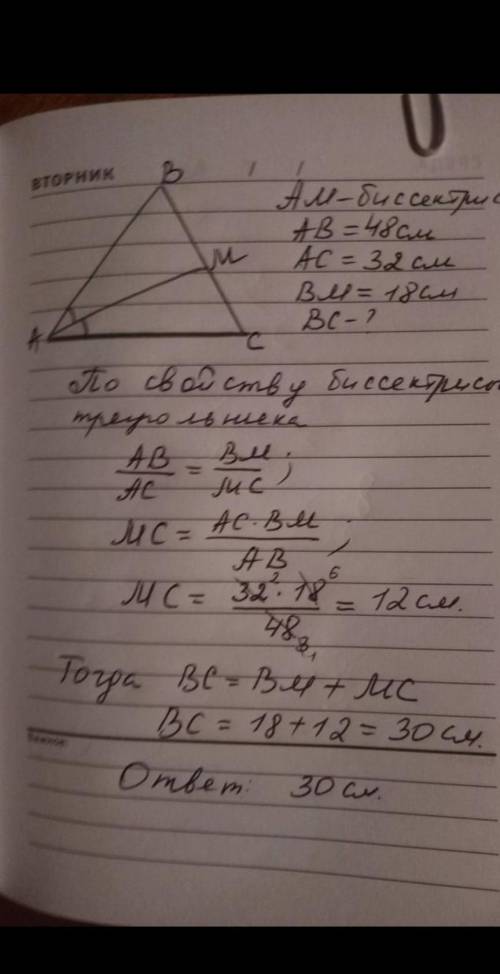 ВТОРНИК
B
M
A
C
AM – биссектрис
AB = 48 см
AC = 32 см
BM = 18 см
BC – ?
По свойству биссектрисы
треугольника
AB/AC = BM/MC;
MC = AC·BM/AB;
MC = 32²·18⁶/48₃₁ = 12 см.
Тогда BC = BM + MC
BC = 18 + 12 = 30 см.
Ответ: 30 см.